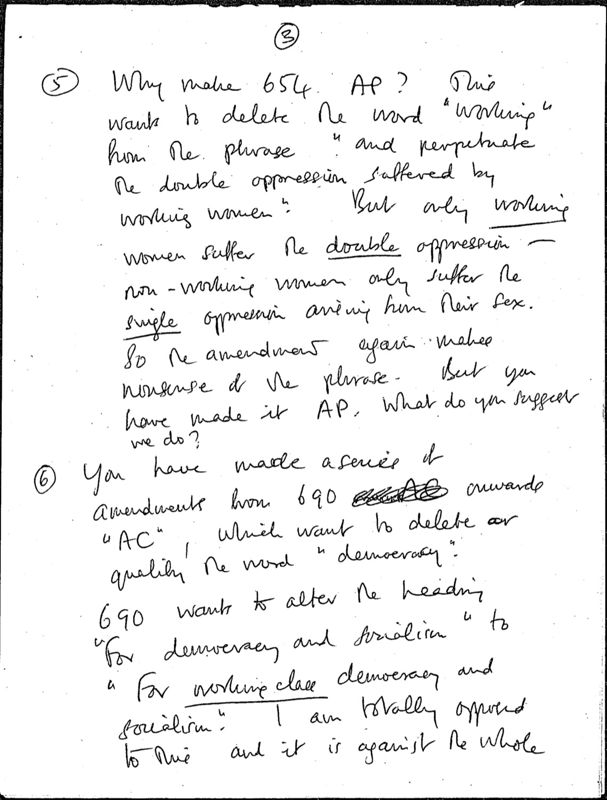 ③
⑤ Why make 654 AP? This
wants to delete the word "working"
from the phrase "and perpetuate
the double oppression suffered by
working women". But only working
women suffer the double oppression —
non-working women only suffer the
single oppression arising from their sex.
So the amendment again makes
nonsense of the phrase. But you
have made it AP. What do you suggest
we do?
⑥ You have made a series of
amendments from 690 onwards
"AC", which want to delete or
qualify the word "democracy".
690 wants to alter the heading
"For democracy and socialism" to
"For working class democracy and
socialism". I am totally opposed
to this and it is against the whole